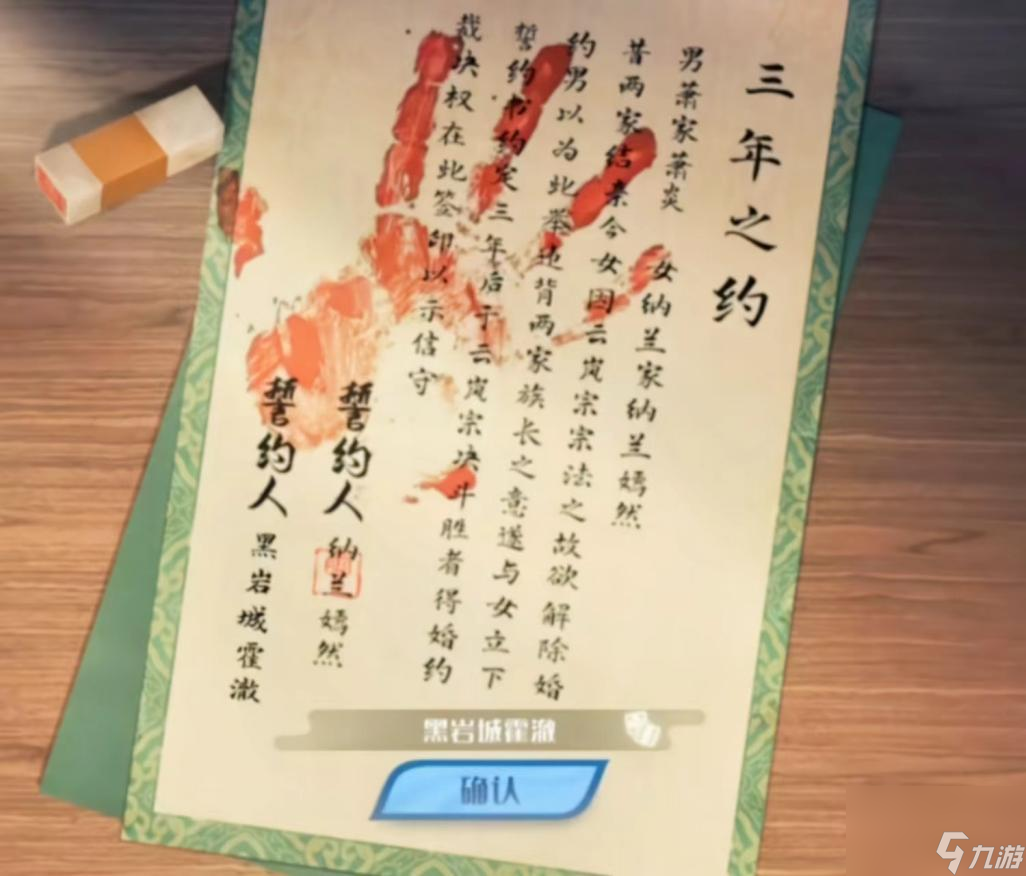 三年之约
男萧家萧炎 女纳兰家纳兰嫣然
昔两家结亲今女因云岚宗宗法之故欲解除婚
约男以为此举违背两家族长之意遂与女立下
誓约书约定三年后于云岚宗决斗胜者得婚约
裁决权在此签印以示信守
誓约人 纳兰嫣然
誓约人 黑岩城霍澈
黑岩城霍澈
确认
九游